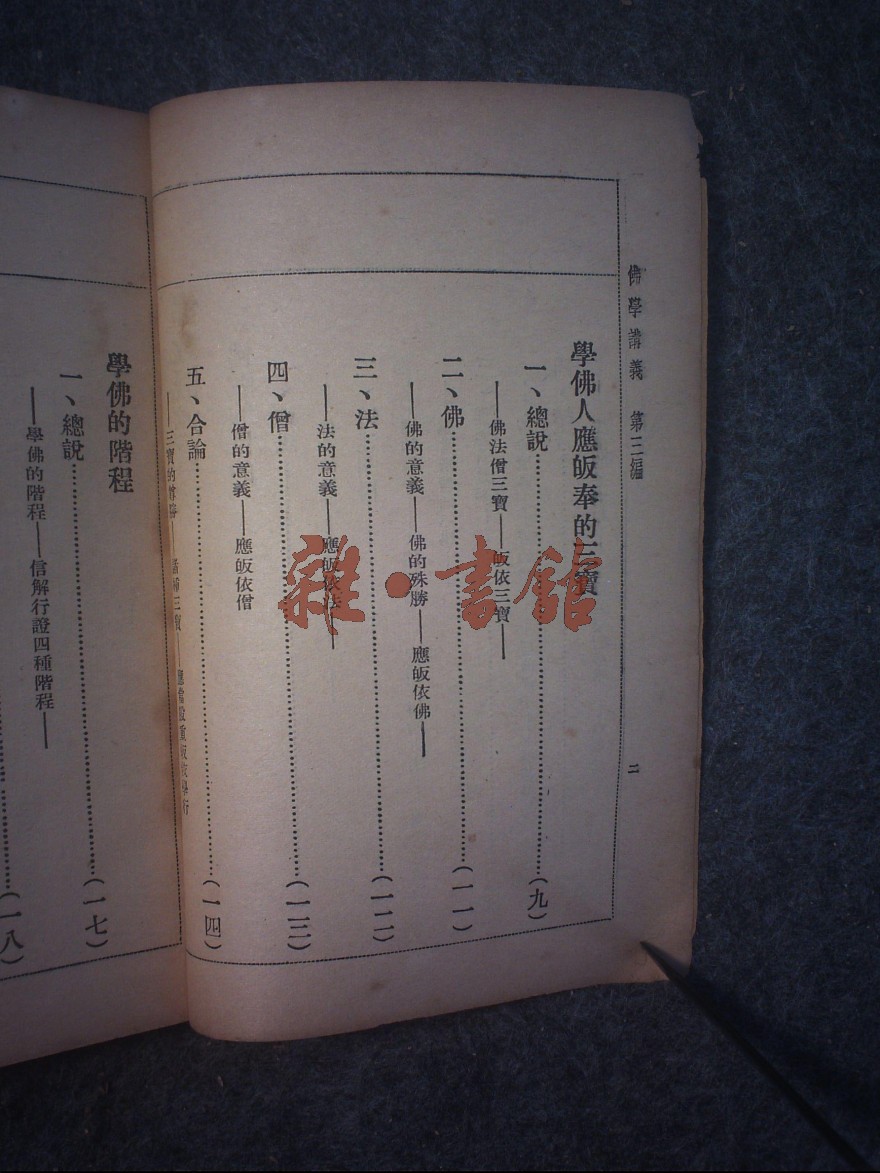 佛學講義　第三編
二
學佛人應皈奉的三寶
一、總說……(九)
——佛法僧三寶——皈依三寶——
二、佛……(一一)
——佛的意義——佛的殊勝——應皈依佛——
三、法……(一二)
——法的意義——應皈依法——
四、僧……(一三)
——僧的意義——應皈依僧
五、合論……(一四)
——三寶的 三寶——應
學佛的階程
一、總說……(一七)
——學佛的階程——信解行證四種階程——
(一八)
雜·書館